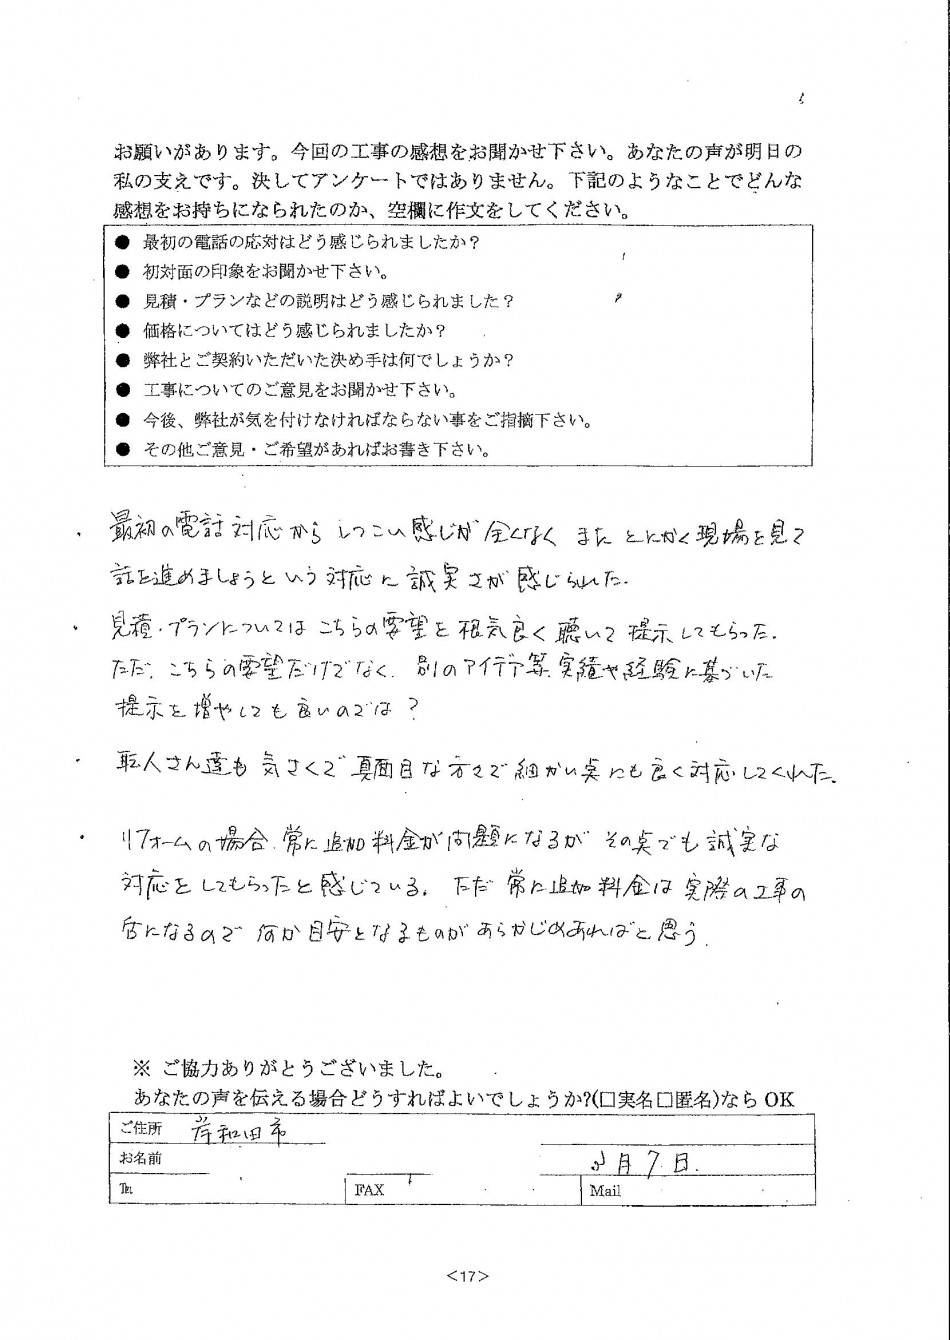 お願いがあります。今回の工事の感想をお聞かせ下さい。あなたの声が明日の
私の支えです。決してアンケートではありません。下記のようなことでどんな
感想をお持ちになられたのか、空欄に作文をしてください。
● 最初の電話の応対はどう感じられましたか？
● 初対面の印象をお聞かせ下さい。
● 見積・プランなどの説明はどう感じられました？
● 価格についてはどう感じられましたか？
● 弊社とご契約いただいた決め手は何でしょうか？
● 工事についてのご意見をお聞かせ下さい。
● 今後、弊社が気を付けなければならない事をご指摘下さい。
● その他ご意見・ご希望があればお書き下さい。
・最初の電話対応から しつこい感じが全くなく また とにかく現場を見て
話を進めましょうという対応に誠実さが感じられた.
・見積・プランについてはこちらの要望を根気良く聴いて提示してもらった.
ただ、こちらの要望だけでなく、別のアイデア等 実績や経験に基づいた
提示を増やしても良いのでは？
・職人さん達も気さくで真面目な方々で細かい点にも良く対応してくれた.
・リフォームの場合、常に追加料金が問題になるが その点でも誠実な
対応をしてもらったと感じている. ただ 常に追加料金は実際の工事の
後になるので 何か目安となるものがあらかじめあればと思う.
※ ご協力ありがとうございました。
あなたの声を伝える場合どうすればよいでしょうか?(□実名□匿名)なら OK
ご住所 岸和田市
お名前 月7日.
℡ FAX Mail
<17>